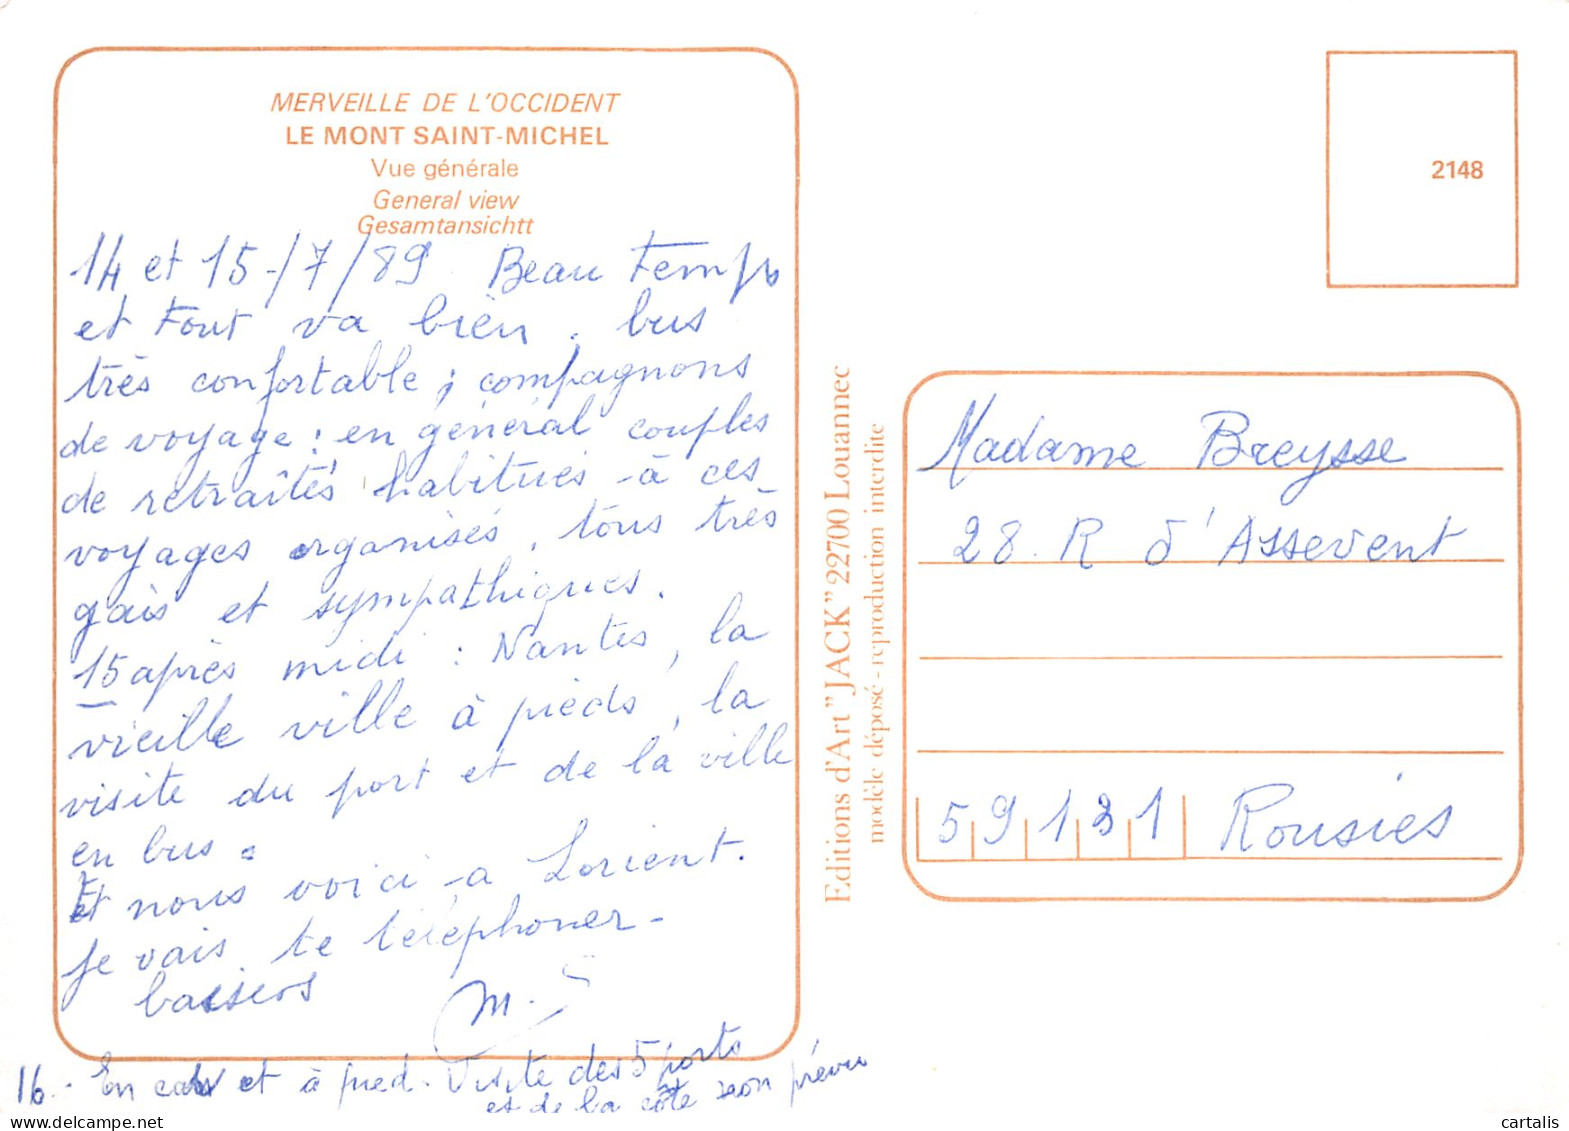 MERVEILLE DE L'OCCIDENT
LE MONT SAINT-MICHEL
Vue générale
General view
Gesamtansichtt
14 et 15-/7/89 Beau temps
et tout va bien, bus
très confortable; compagnons
de voyage: en général couples
de retraités habitués à ces
voyages organisés, tous très
gais et sympathiques.
15 après midi : Nantes, la
vieille ville à pieds, la
visite du port et de la ville
en bus.
Et nous voici à Lorient.
Je vais te téléphoner-
baisers
M.
16.- En car et à pied. Visite des 5 ports
et de la côte non prévu
Editions d'Art "JACK" 22700 Louannec
modèle déposé - reproduction interdite
2148
Madame Breysse
28. R d'Assevent
59131 Rousies
cartalis.com